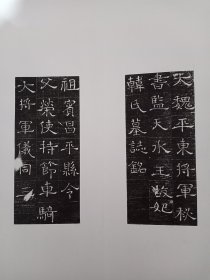 大魏平東將軍秘
書監天水王故妃
韓氏墓誌銘
祖賓昌平縣令
父榮使持節車騎
大將軍儀同三